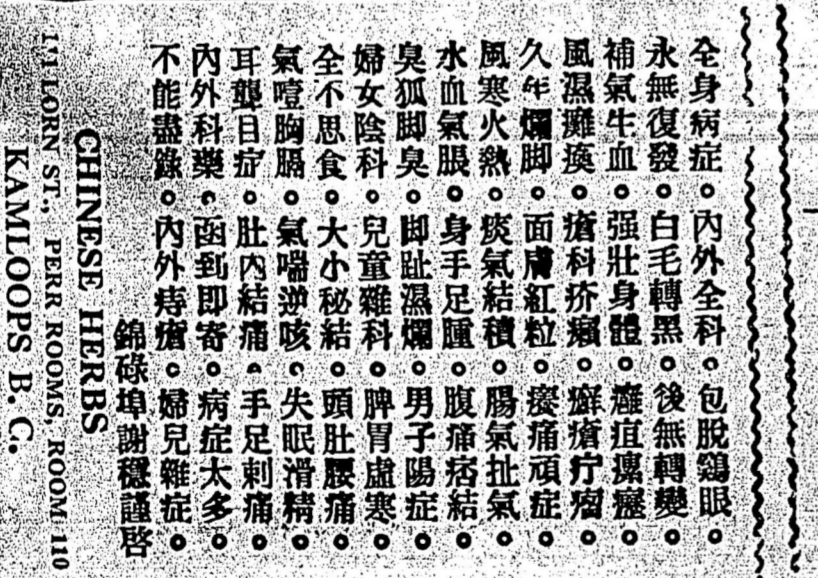 全身病症。內外全科。包脫鷄眼。
永無復發。白毛轉黑。後無轉變。
補氣生血。强壯身體。癰疽瘰癧。
風濕癱瘓。瘡科疥癩。癬瘡疔瘤。
久年爛脚。面膚紅粒。痠痛頑症。
風寒火熱。痰氣結積。腸氣扯氣。
水血氣脹。身手足腫。腹痛痞結。
臭狐脚臭。脚趾濕爛。男子陽症。
婦女陰科。兒童雜科。脾胃虛寒。
全不思食。大小秘結。頭肚腰痛。
氣噎胸膈。氣喘逆咳。失眠滑精。
耳聾目症。肚內結痛。手足刺痛。
內外科藥。函到即寄。病症太多。
不能盡錄。內外痔瘡。婦兒雜症。
錦碌埠謝穩謹啓
CHINESE HERBS
LORN ST., PERR ROOMS, ROOM 110
KAMLOOPS B. C.